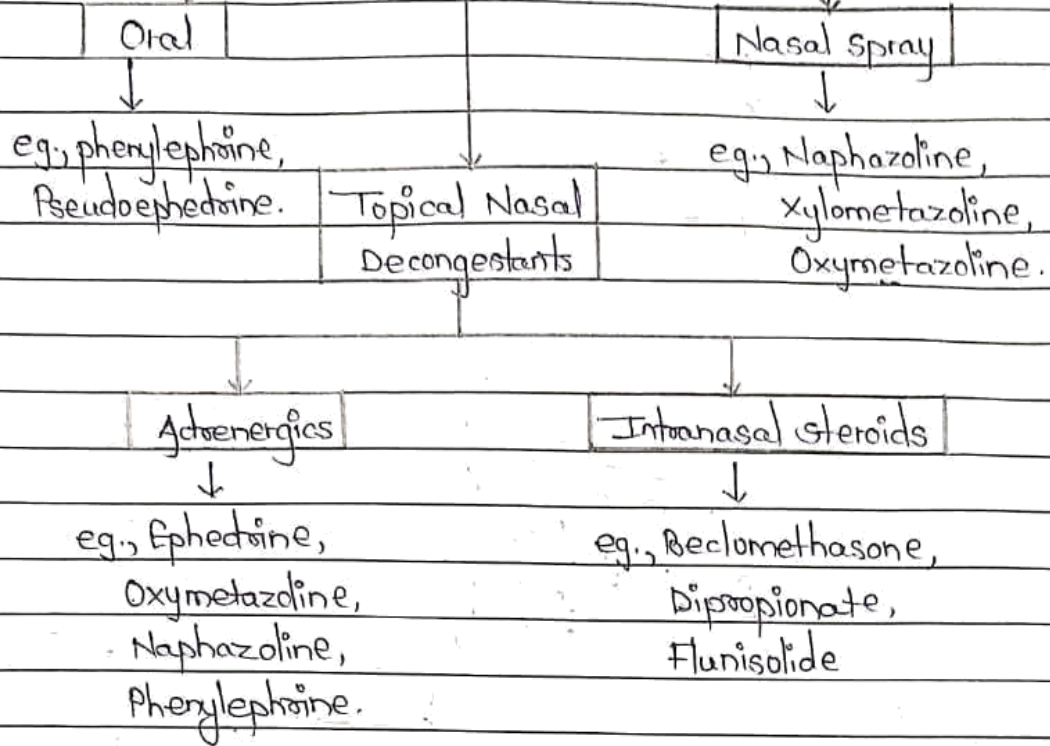 Oral
eg., phenylephrine,
Pseudoephedrine.
Nasal Spray
eg., Naphazoline,
Xylometazoline,
Oxymetazoline.
Topical Nasal
Decongestants
Adrenergics
eg., Ephedrine,
Oxymetazoline,
Naphazoline,
Phenylephrine.
Intranasal steroids
eg., Beclomethasone,
Dipropionate,
Flunisolide